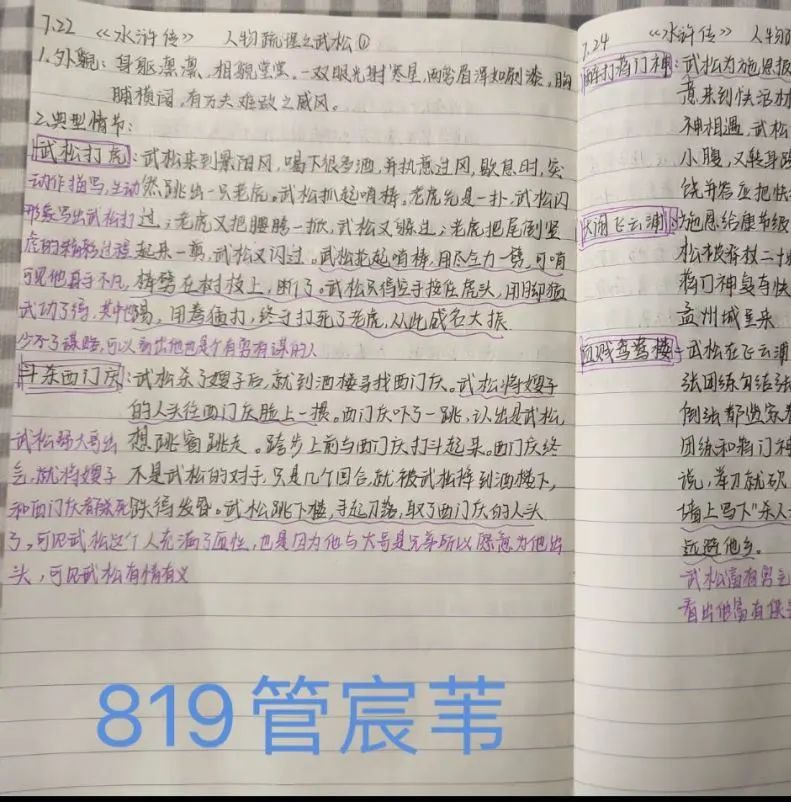 7.22 《水浒传》 人物梳理之武松①
1.外貌：身躯凛凛，相貌堂堂。一双眼光射寒星，两弯眉浑如刷漆，胸
脯横阔，有万夫难敌之威风。
2.典型情节：
武松打虎：武松来到景阳冈，喝下很多酒，并执意过冈，歇息时，突
动作描写，生动 然跳出一只老虎。武松抓起哨棒。老虎先是一扑，武松闪
形象写出武松打 过；老虎又把腰胯一掀，武松又躲过；老虎把尾倒竖
虎的精彩过程 起来一剪，武松又闪过。武松抡起哨棒，用尽全力一劈，可哨
可见他真手不凡， 棒劈在树枝上，断了。武松只得空手按住虎头，用脚猛
武功了得，其中也 踢，用拳猛打，终于打死了老虎，从此威名大振
少不了谋略，可以看出他也是个有勇有谋的人
斗杀西门庆：武松杀了嫂子后，就到酒楼寻找西门庆。武松将嫂子
的人头往西门庆脸上一掼。西门庆吓了一跳，认出是武松，
武松替大哥出 想跳窗跳走。跨步上前与西门庆打斗起来。西门庆终
气，就将嫂子 不是武松的对手，只是几个回合，就被武松摔到酒楼下，
和西门庆都杀死 跌得发昏。武松跳下楼，手起刀落，取了西门庆的人头
了，可见武松这个人充满了血性，也是因为他与大哥是兄弟所以愿意为他出
头，可见武松有情有义
7.24 《水浒传》 人物
醉打蒋门神：武松为施恩报
意来到快活林
神相遇，武松
小腹，又转身
饶并答应把快
大闹飞云浦：施恩给康节级
松被脊杖二十
蒋门神复夺快
孟州城里来
血溅鸳鸯楼：武松在飞云浦
张团练勾结张
倒张都监家
团练和蒋门神
说，举刀就砍
墙上写下“杀人
远避他乡。
武松富有
看出他富有
819管宸苇